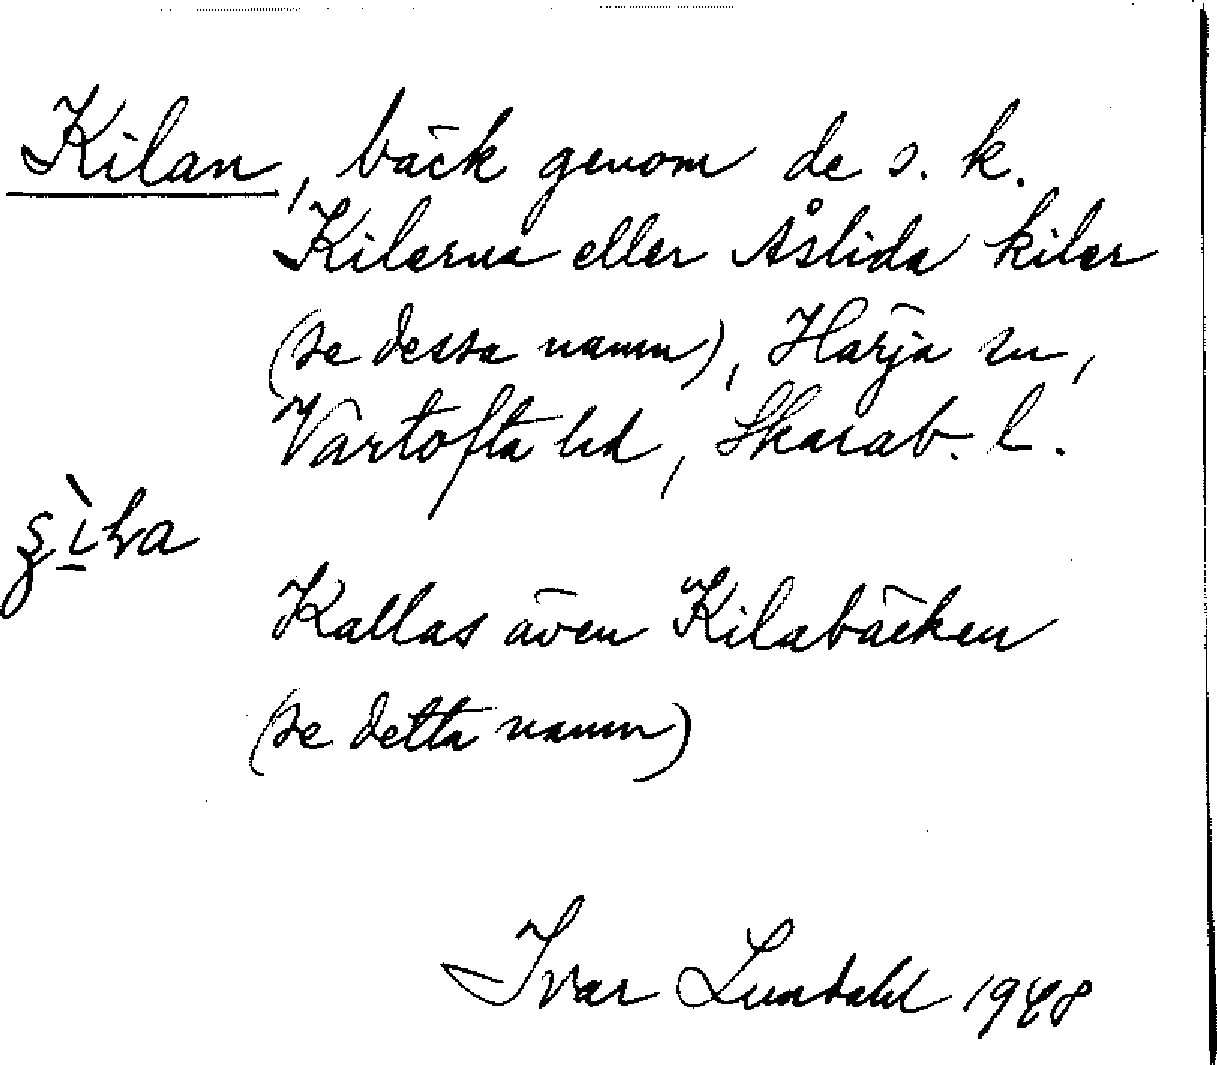 Kilan, bäck genom de s. k.
Kilerna eller Åslida kiler
(se dessa namn), Härja sn,
Vartofta hd, Skarab. l.
Kallas även Kilabäcken
(se detta namn)
Ivar Lundahl 1948